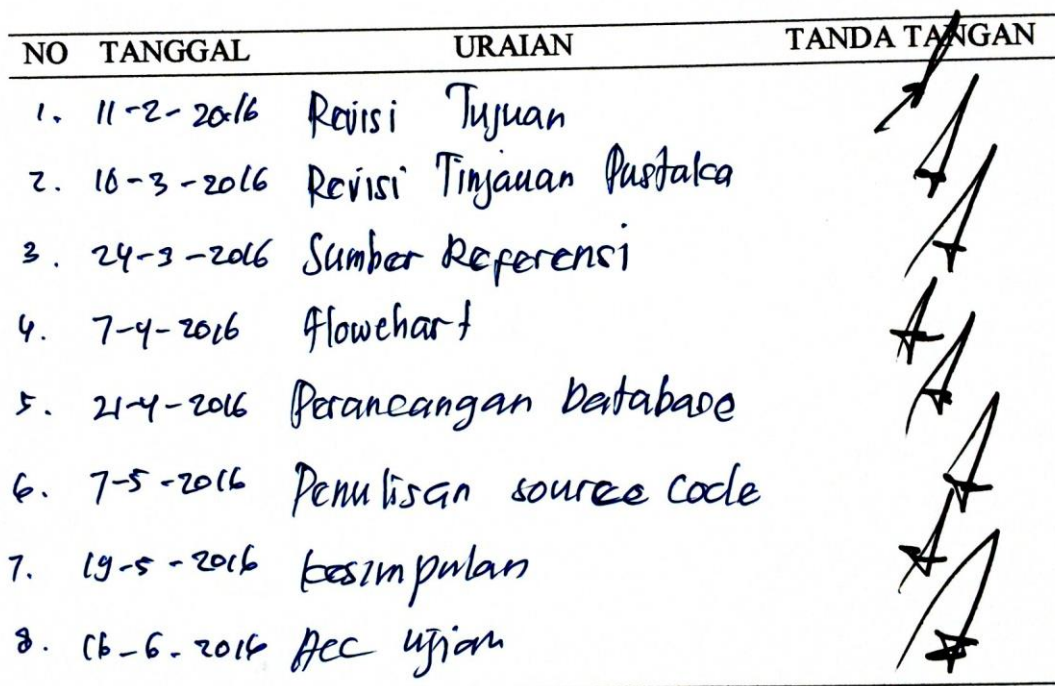 NO TANGGAL URAIAN TANDA TANGAN
1. 11-2-2016 Revisi Tujuan
2. 10-3-2016 Revisi Tinjauan Pustaka
3. 24-3-2016 Sumber Referensi
4. 7-4-2016 Flowchart
5. 21-4-2016 Perancangan Database
6. 7-5-2016 Penulisan source code
7. 19-5-2016 kesimpulan
8. 16-6-2016 Acc ujian